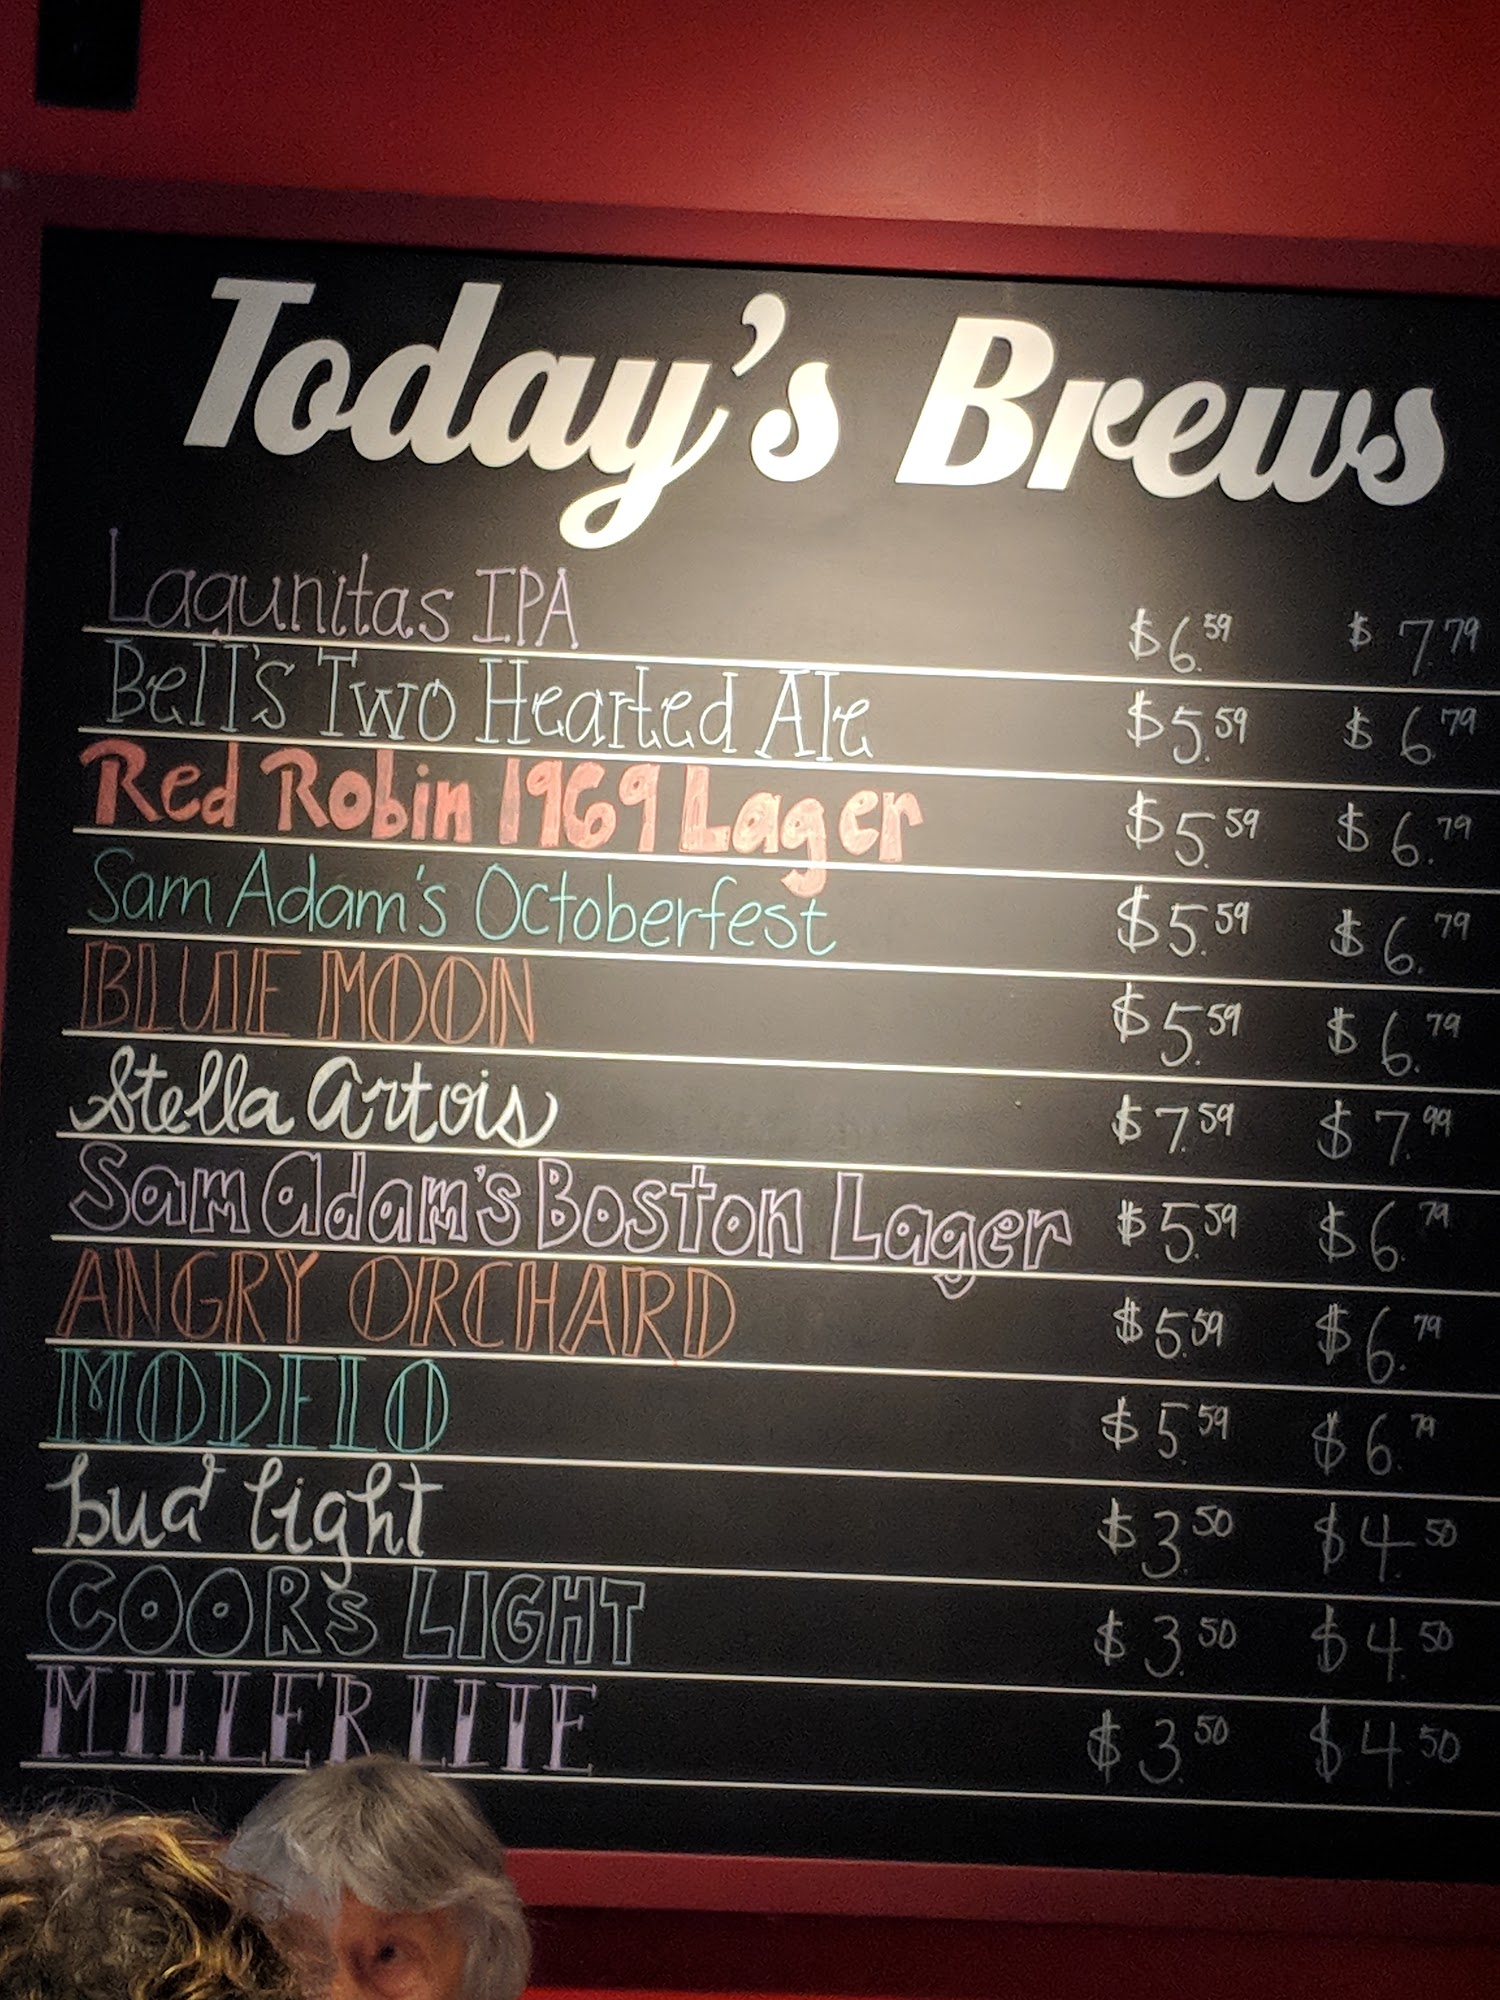 Today's Brews
Lagunitas IPA $6.59 $7.79
Bell's Two Hearted Ale $5.59 $6.79
Red Robin 1969 Lager $5.59 $6.79
Sam Adam's Octoberfest $5.59 $6.79
BLUE MOON $5.59 $6.79
Stella Artois $7.59 $7.99
Sam Adam's Boston Lager $5.59 $6.79
ANGRY ORCHARD $5.59 $6.79
MODELO $5.59 $6.79
bud light $3.50 $4.50
COORS LIGHT $3.50 $4.50
MILLER LITE $3.50 $4.50